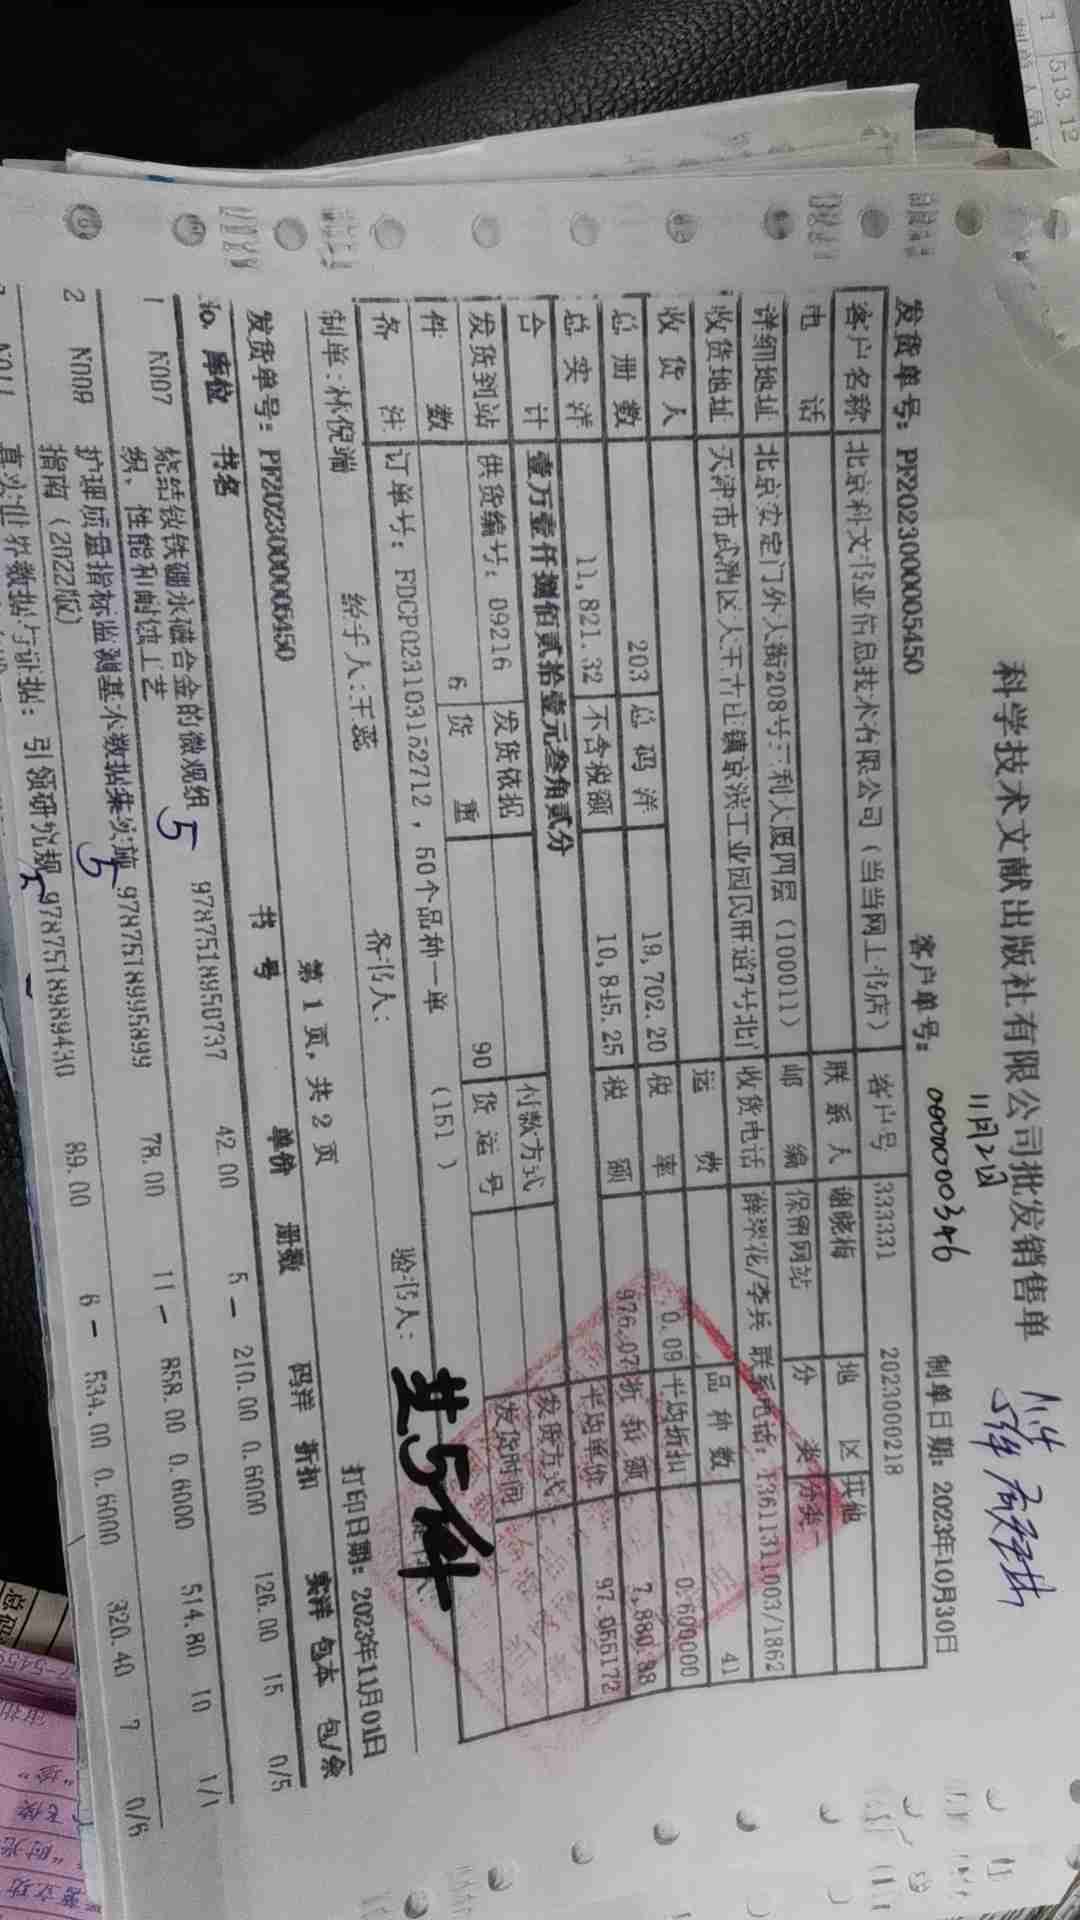 科学技术文献出版社有限公司批发销售单
11月2日
发货单号: PF2023000005450 客户单号: 0000000346 制单日期: 2023年10月30日
客户名称 北京科文书业信息技术有限公司(当当网上书店) 客户号 333331 2023000218
电 话 联系人 谢晓梅 地 区 其他
详细地址 北京安定门外大街208号三利大厦四层(100011) 邮 编 保留网站 分 类 分类一
收货地址 天津市武清区大王古庄镇京滨工业园民旺道7号北门 收货电话 薛翠花/李兵 联系电话: 13611311003/1862
收 货 人 运 费 品 种 数 41
总 册 数 203 总 码 洋 19,702.20 税 率 0.09 平均折扣 0.600000
总 实 洋 11,821.32 不含税额 10,845.25 税 额 976.07 折 扣 额 7,880.88
合 计 壹万壹仟捌佰贰拾壹元叁角贰分 平均单价 97.055172
发货到站 供货编号: 09216 发货依据 付款方式 发货方式
件 数 6 货 重 90 货 运 号 发货时间
备 注 订单号: FDCP023103152712, 50个品种一单 (151)
共5件
制单:林倪端 经手人:王蕊 备书人: 验书人:
打印日期: 2023年11月01日
发货单号: PF2023000005450 第 1 页, 共 2 页
No. 库位 书名 书 号 单价 册数 码洋 折扣 实洋 包本 包/余
1 N007 烧结钕铁硼永磁合金的微观组 9787518950737 42.00 5 - 210.00 0.6000 126.00 15 0/5
织、性能和耐蚀工艺 5
2 N008 护理质量指标监测基本数据集实施 9787518995899 78.00 11 - 858.00 0.6000 514.80 10 1/1
指南(2022版) 5
N011 真实世界数据与证据: 引领研究规 9787518989430 89.00 6 - 534.00 0.6000 320.40 7 0/6